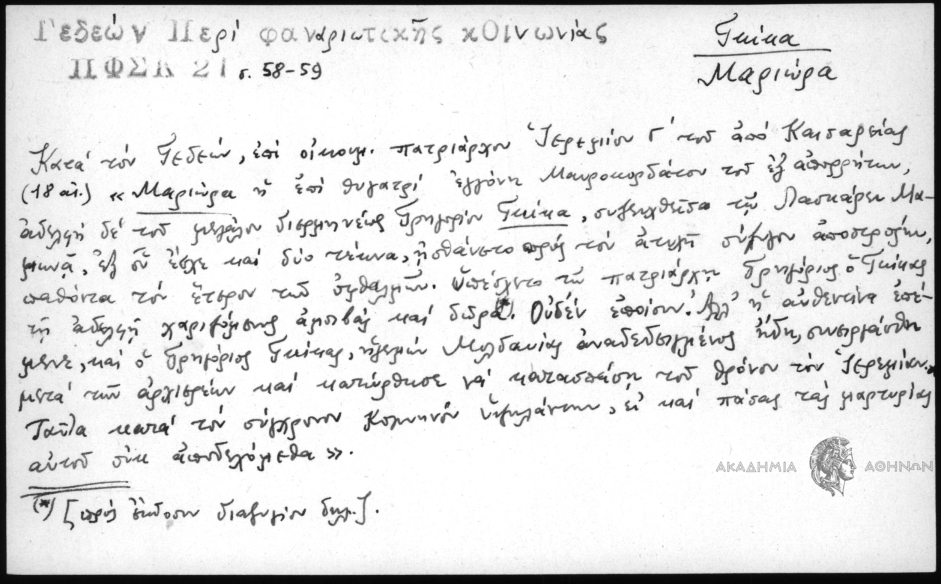 Γεδεών Περί φαναριωτικῆς κοινωνίας
ΠΦΣΚ 21 σ. 58-59
Γκίκα
Μαριώρα
Κατά τόν Γεδεών, ἐπί οἰκουμ. πατριάρχου Ἱερεμίου Γ' τοῦ ἀπό Καισαρείας
(18 αἰ.) «Μαριώρα ἡ ἐπί θυγατρί ἐγγόνη Μαυροκορδάτου τοῦ ἐξ ἀπορρήτων,
ἀδελφή δέ τοῦ μεγάλου διερμηνέως Γρηγορίου Γκίκα, συζευχθεῖσα τῷ Λασκάρει Μα-
, ἐξ οὗ ἔσχε καί δύο τέκνα, ἠσθάνετο πρός τόν ἀτυχῆ σύζυγον ἀποστροφήν,
παθόντα τόν ἕτερον τῶν ὀφθαλμῶν. Ὑπέσχετο τῷ πατριάρχῃ Γρηγόριος ὁ Γκίκας
τῇ ἀδελφῇ χαριζόμενος ἀμοιβάς καί δῶρα*. Οὐδέν ἐποίουν. Ἀλλ' ἡ αὐθεντίνα ἐπέ-
μενε, καί ὁ Γρηγόριος Γκίκας, ἡγεμών Μολδαυίας ἀναδεδειγμένος ἤδη, συνειργάσθη
μετά τῶν ἀρχιερέων καί κατώρθωσε νά κατασπάσῃ τοῦ θρόνου τόν Ἱερεμίαν..
Ταῦτα κατά τόν σύγχρονον Κομνηνόν Ὑψηλάντην, εἰ καί πάσας τάς μαρτυρίας
αὐτοῦ οὐκ ἀποδεχόμεθα».
(*) [πρός ἔκδοσιν διαζυγίου δηλ.].
ΑΚΑΔΗΜΙΑ ΑΘΗΝΩΝ